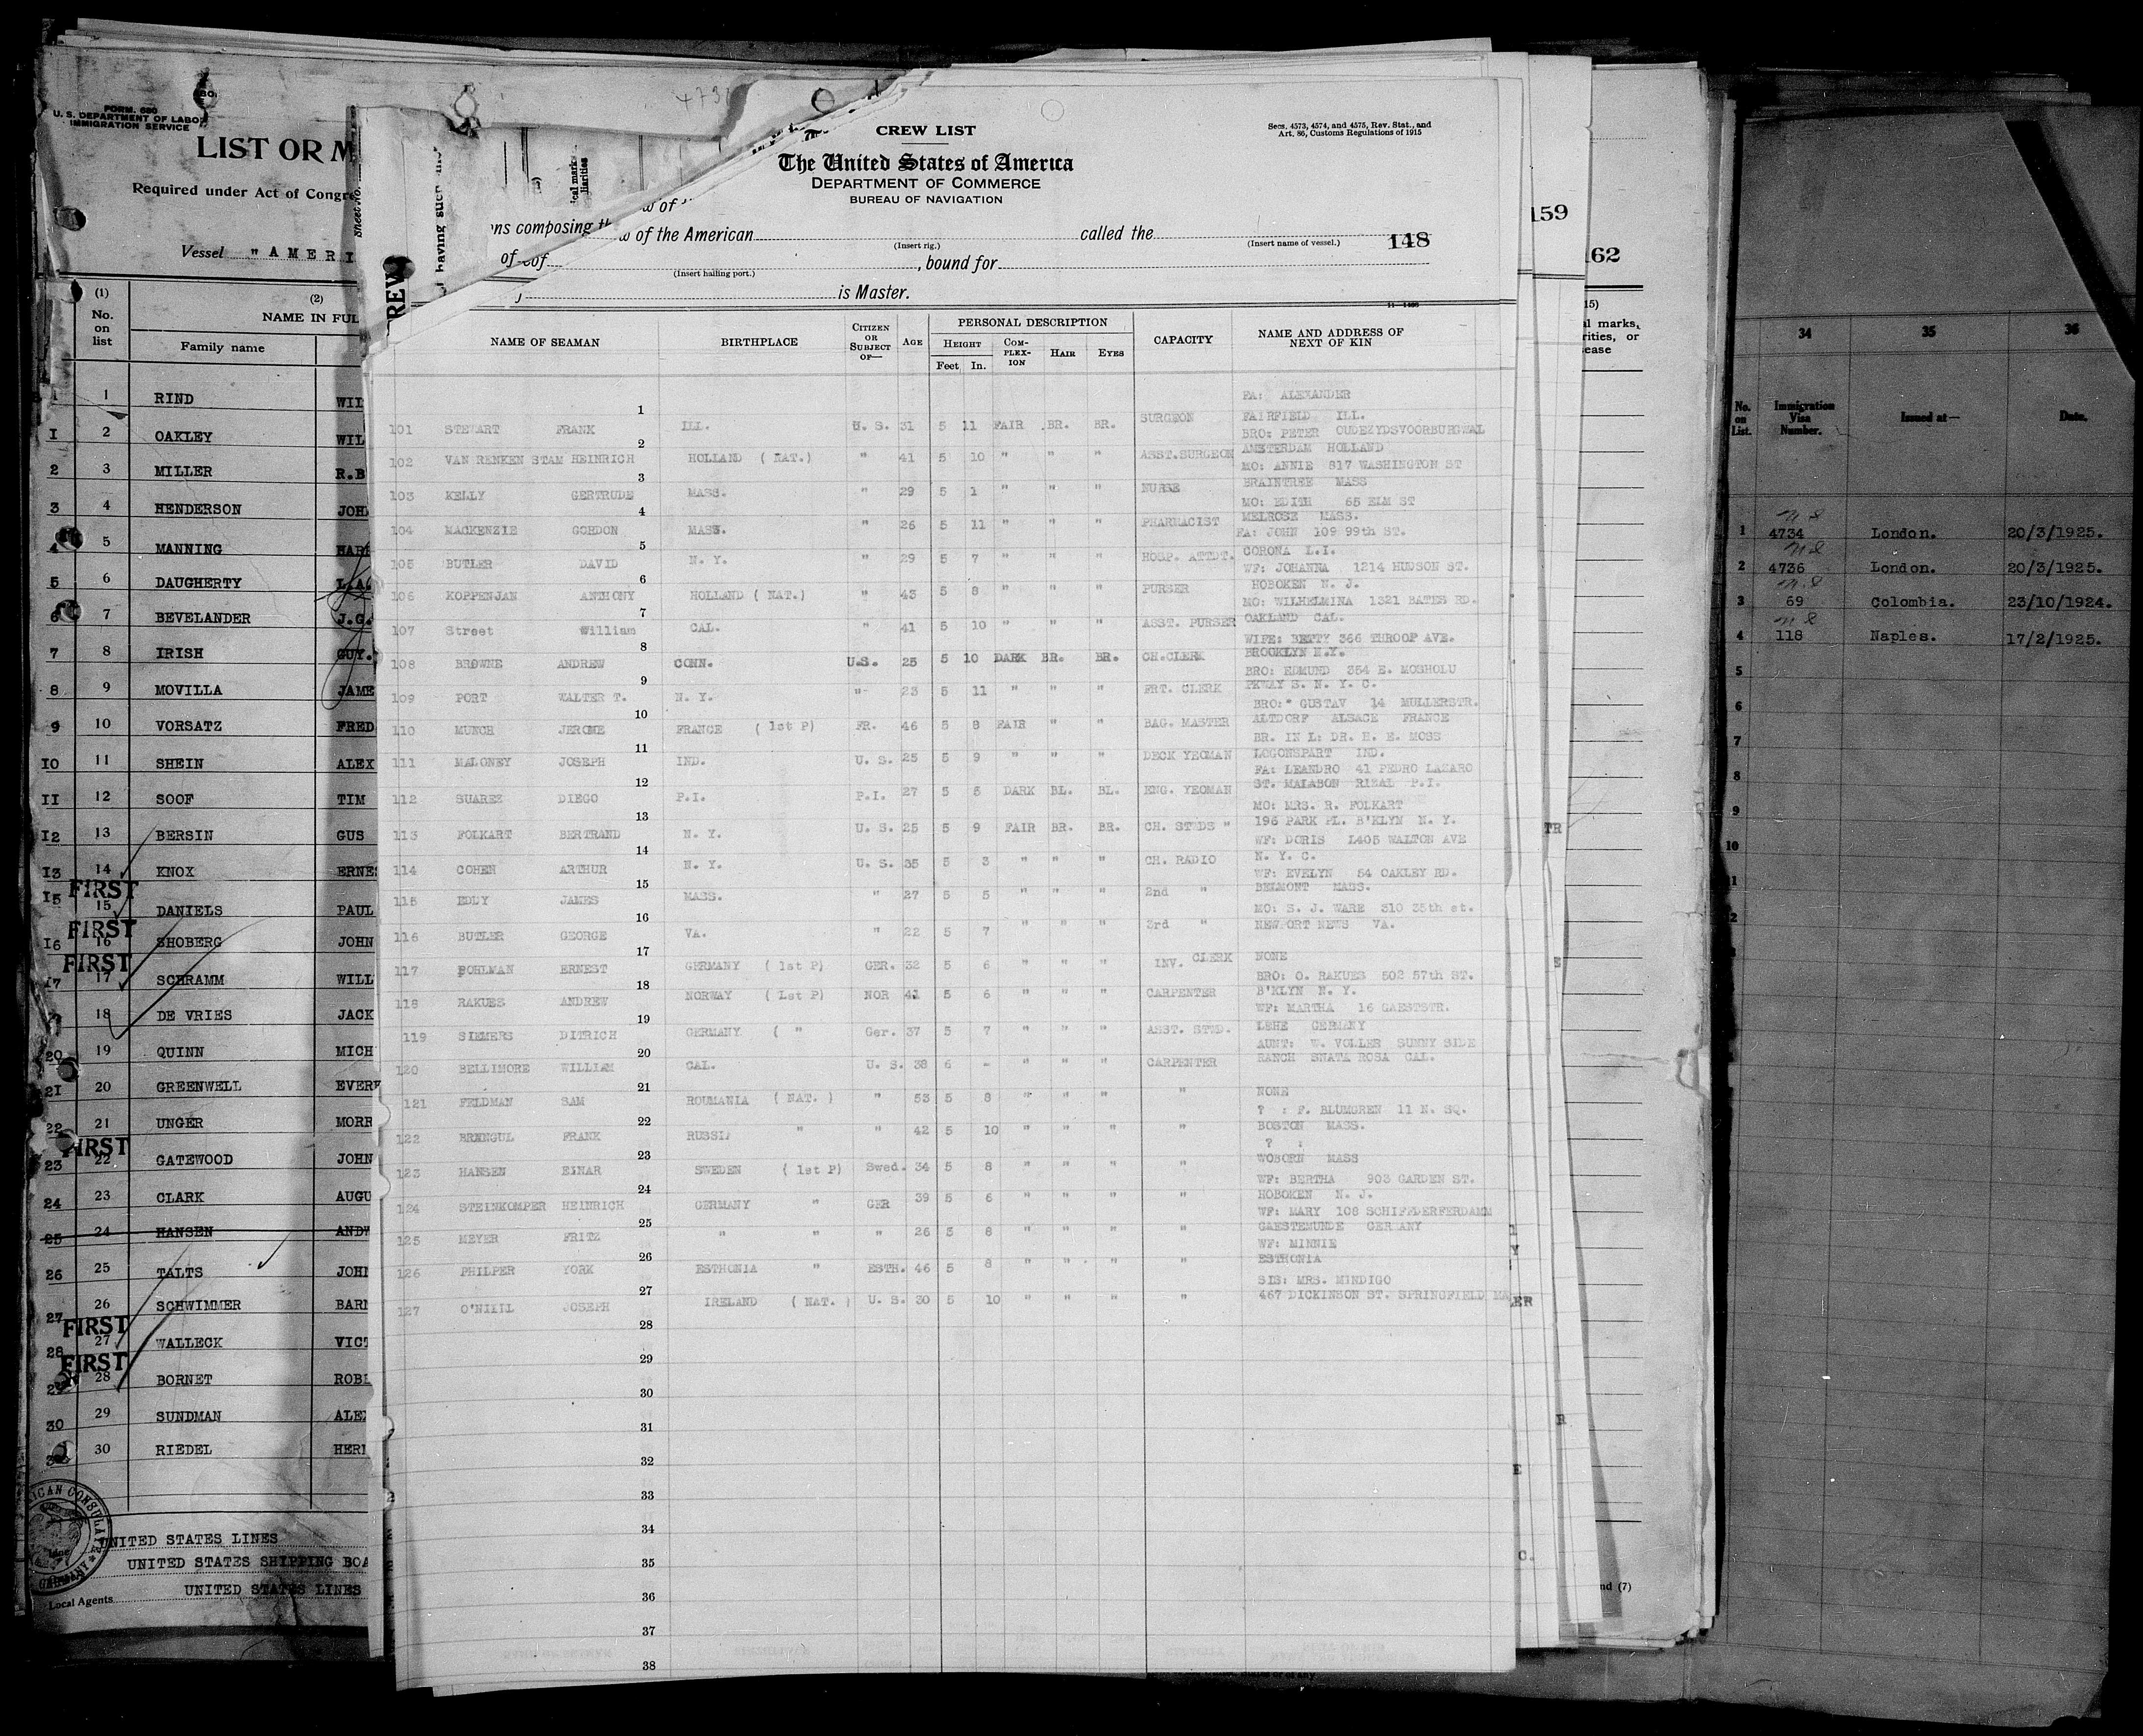 FORM. 680
U. S. DEPARTMENT OF LABOR
IMMIGRATION SERVICE
LIST OR M
Required under Act of Congre
Vessel "AMERI
(1)
No.
on
list
(2)
NAME IN FUL
Family name
1 1 RIND WIL
1 2 OAKLEY WIL
2 3 MILLER R.B
3 4 HENDERSON JOH
4 5 MANNING HAR
5 6 DAUGHERTY L.A.
6 7 BEVELANDER J.G.
7 8 IRISH GUY.
8 9 MOVILLA JAME
9 10 VORSATZ FRED
10 11 SHEIN ALEX
11 12 SOOF TIM
12 13 BERSIN GUS
13 14 KNOX ERNE
FIRST
15 15 DANIELS PAUL
FIRST
16 16 SHOBERG JOHN
FIRST
17 17 SCHRAMM WILL
18 DE VRIES JACK
20 19 QUINN MICH
21 20 GREENWELL EVER
22 21 UNGER MORR
FIRST
23 22 GATEWOOD JOHN
24 23 CLARK AUGU
25 24 HANSEN ANDW
26 25 TALTS JOH
27 26 SCHWIMMER BARN
FIRST
28 27 WALLECK VICT
FIRST
29 28 BORNET ROBE
30 29 SUNDMAN ALEX
30 RIEDEL HER
UNITED STATES LINES
UNITED STATES SHIPPING BOA
UNITED STATES LINES
Local Agents
Sheet No.
having such
CREW
473
CREW LIST
Secs. 4573, 4574, and 4575, Rev. Stat., and
Art. 86, Customs Regulations of 1915
The United States of America
DEPARTMENT OF COMMERCE
BUREAU OF NAVIGATION
ns composing th w of the American called the
(Insert rig.) (Insert name of vessel.)
148
of of , bound for
(Insert hailing port.)
is Master.
NAME OF SEAMAN
BIRTHPLACE
CITIZEN
OR
SUBJECT
OF—
AGE
PERSONAL DESCRIPTION
HEIGHT
Feet In.
COM-
PLEX-
ION
HAIR
EYES
CAPACITY
NAME AND ADDRESS OF
NEXT OF KIN
FA: ALEXANDER
1
101 STEWART FRANK ILL. U. S. 31 5 11 FAIR BR. BR. SURGEON FAIRFIELD ILL.
BRO: PETER OUDEZYDSVOORBURGWAL
2
102 VAN RENKEN STAM HEINRICH HOLLAND ( NAT.) " 41 5 10 " " " ASST.SURGEON AMSTERDAM HOLLAND
MO: ANNIE 817 WASHINGTON ST
3
103 KELLY GERTRUDE MASS. " 29 5 1 " " " NURSE BRAINTREE MASS
MO: EDITH 65 ELM ST
4
104 MACKENZIE GORDON MASS. " 26 5 11 " " " PHARMACIST MELROSE MASS.
FA: JOHN 109 99th ST.
5
105 BUTLER DAVID N. Y. " 29 5 7 " " " HOSP. ATTDT. CORONA L.I.
WF: JOHANNA 1214 HUDSON ST.
6
106 KOPPENJAN ANTHONY HOLLAND ( NAT.) " 43 5 8 " " " PURSER HOBOKEN N. J.
MO: WILHELMINA 1321 BATES RD.
7
107 Street William CAL. " 41 5 10 " " " ASST. PURSER OAKLAND CAL.
WIFE: BETTY 366 THROOP AVE.
8
108 BROWNE ANDREW CONN. U.S. 25 5 10 DARK BR. BR. CH.CLERK BROOKLYN N.Y.
BRO: EDMUND 354 E. MOSHOLU
9
109 PORT WALTER T. N. Y. " 23 5 11 " " " FRT. CLERK PKWAY S. N. Y. C.
BRO: GUSTAV 14 MULLERSTR.
10
110 MUNCH JEROME FRANCE ( 1st P) FR. 46 5 8 FAIR " " BAG. MASTER ALTDORF ALSACE FRANCE
BR. IN L: DR. H. E. MOSS
11
111 MALONEY JOSEPH IND. U. S. 25 5 9 " " " DECK YEOMAN LOGONSPART IND.
FA: LEANDRO 41 PEDRO LAZARO
12
112 SUAREZ DIEGO P.I. P.I. 27 5 5 DARK BL. BL. ENG. YEOMAN ST. MALABON RIZAL P.I.
MO: MRS. R. FOLKART
13
113 FOLKART BERTRAND N. Y. U. S. 25 5 9 FAIR BR. BR. CH. STDS " 196 PARK PL. B'KLYN N. Y.
WF: DORIS 1405 WALTON AVE
14
114 COHEN ARTHUR N. Y. U. S. 35 5 3 " " " CH. RADIO N. Y. C.
WF: EVELYN 54 OAKLEY RD.
15
115 EDDY JAMES MASS. " 27 5 5 " " " 2nd " BELMONT MASS.
MO: S. J. WARE 310 35th st.
16
116 BUTLER GEORGE VA. " 22 5 7 " " " 3rd " NEWPORT NEWS VA.
17
117 POHLMAN ERNEST GERMANY ( 1st P) GER. 32 5 6 " " " INV. CLERK NONE
BRO: O. RAKUES 502 57th ST.
18
118 RAKUES ANDREW NORWAY ( 1st P) NOR 41 5 6 " " " CARPENTER B'KLYN N. Y.
WF: MARTHA 16 GAESTSTR.
19
119 SIEMERS DITRICH GERMANY ( " Ger. 37 5 7 " " " ASST. STUD. LEHE GERMANY
AUNT: W. VOLLER SUNNY SIDE
20
120 BELLIMORE WILLIAM CAL. U. S. 38 6 - " " " CARPENTER RANCH SNATA ROSA CAL.
21
121 FELDMAN SAM ROUMANIA ( NAT. ) " 53 5 8 " " " " NONE
? : F. BLUMGREN 11 N. SQ.
22
122 FRANK RUSSIA " " 42 5 10 " " " " BOSTON MASS.
? :
23
123 HANSEN EINAR SWEDEN ( 1st P) Swed. 34 5 8 " " " " WOBORN MASS
WF: BERTHA 903 GARDEN ST.
24
124 STEINKOMPER HEINRICH GERMANY " GER 39 5 6 " " " " HOBOKEN N. J.
WF: MARY 108 SCHIFFDERFERDAMM
25
125 MEYER FRITZ " " " 26 5 8 " " " " GAESTEMUNDE GERMANY
WF: MINNIE
26
126 PHILPER YORK ESTHONIA " ESTH. 46 5 8 " " " " ESTHONIA
SIS: MRS. MINDIGO
27
127 O'NIILL JOSEPH IRELAND ( NAT. ) U. S. 30 5 10 " " " " 467 DICKINSON ST. SPRINGFIELD MA
28
29
30
31
32
33
34
35
36
37
38
159
162
15)
al marks,
rities, or
ease
nd (7)
34 35 36
No.
on
List.
Immigration
Visa
Number.
Issued at—
Date.
1 4734 London. 20/3/1925.
2 4736 London. 20/3/1925.
3 69 Colombia. 23/10/1924.
4 118 Naples. 17/2/1925.
5
6
7
8
9
10